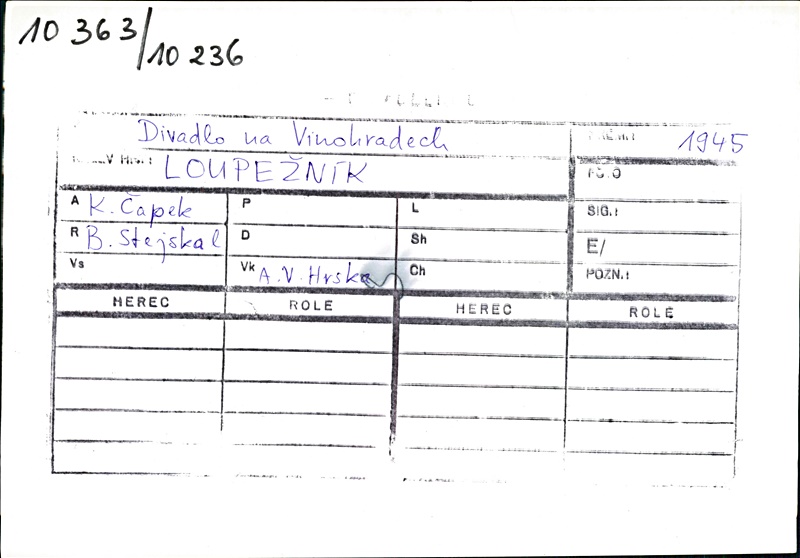 10 363/10 236
Divadlo na Vinohradech 1945
LOUPEŽNÍK
A K. Čapek P L SIG.:
R B. Stejskal D Sh E/
Vs Vk A. V. Hrska Ch POZN.:
HEREC ROLE HEREC ROLE